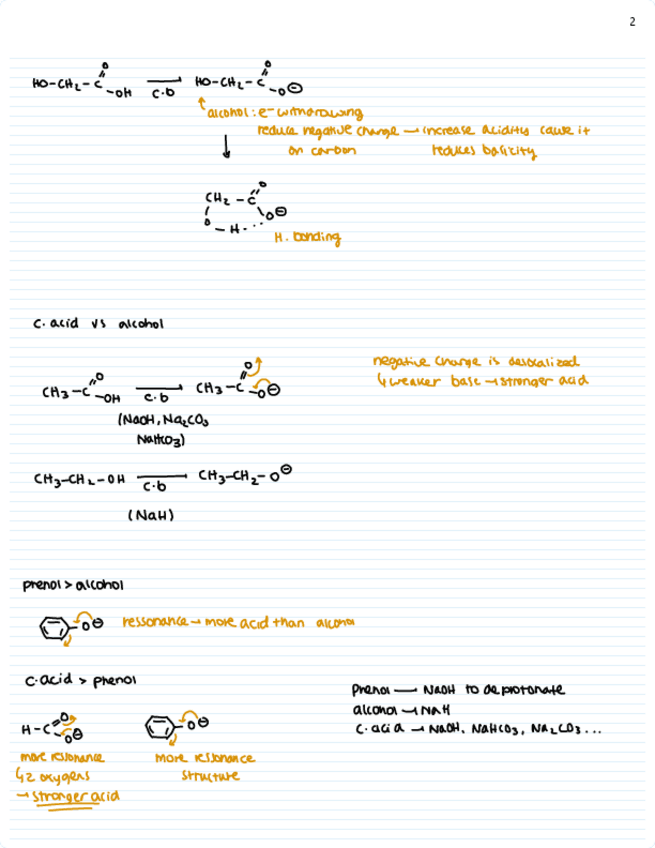 2
HO-CH₂-C(=O)-OH → HO-CH₂-C(=O)-O⊖
c.b
↑ alcohol: e⁻ withdrawing
reduce negative charge → increase acidity cause it
on carbon reduces basicity
CH₂-C(=O)-O⊖
O-H···
H. bonding
c. acid vs alcohol
CH₃-C(=O)-OH → CH₃-C(=O)-O⊖
c.b
(NaOH, Na₂CO₃
NaHCO₃)
negative charge is deslocalized
↳ weaker base → stronger acid
CH₃-CH₂-OH → CH₃-CH₂-O⊖
c.b
(NaH)
phenol > alcohol
O⊖ ressonance → more acid than alcohol
c.acid > phenol
H-C(=O)-O⊖
O⊖
more resonance
↳ 2 oxygens
→ stronger acid
more resonance
structure
Phenol — NaOH to deprotonate
alcohol → NaH
c. acid → NaOH, NaHCO₃, Na₂CO₃...